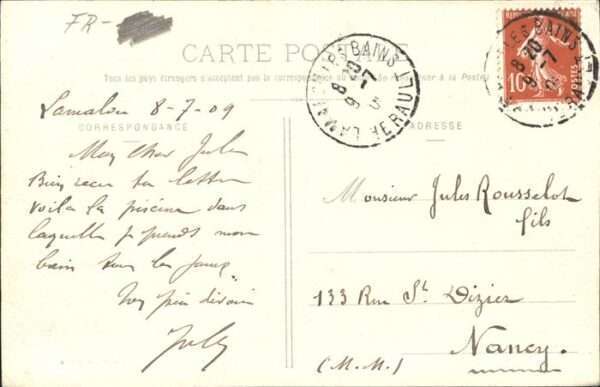 FR-
CARTE POSTALE
Tous les pays étrangers n'acceptent pas la correspondance au à la Poste
Lamalou 8-7-09
CORRESPONDANCE
ADRESSE
Mon Cher Jules
Bien reçu ta lettre
voila la piscine dans
laquelle je prends mon
bain tous les jours
Monsieur Jules Rousselot
fils
133 Rue St Dizier
Nancy
(M.M.)
LAMALOU LES BAINS
HERAULT
8 20
8 - 7
LES BAINS
8 20
8 - 7
10
POSTES